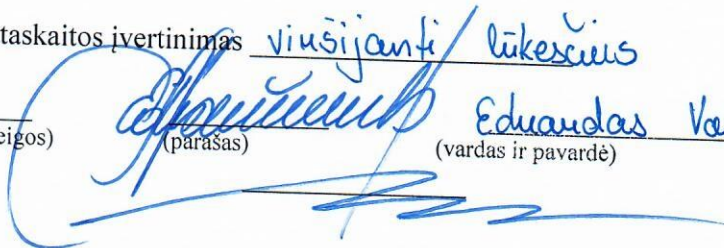 taskaitos įvertinimas viršijanti lūkesčius
eigos) (parašas) Eduardas Va
(vardas ir pavardė)